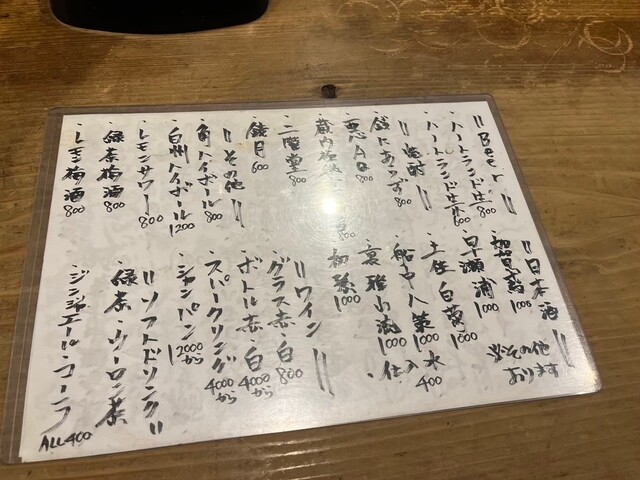 〃Beer〃
・ハートランド生 800
・ハートランド生小 600
〃焼酎〃
・銭にあらず 800
・悪 800
・二階堂 800
・鏡月 600
〃その他〃
・角ハイボール 800
・白州ハイボール 1200
・レモンサワー 800
・緑茶梅酒 800
・レモン梅酒 800
〃日本酒〃
・加賀鳶 1000
・早瀬浦 1000
・土佐白菊 1000
・船中八策 1000
・裏雅山流 1000
・初孫 1000
※その他おります
水 400
・仕入
〃ワイン〃
・グラス赤・白 800
・ボトル赤・白 4000から
・スパークリング 4000から
・シャンパン 12000から
〃ソフトドリンク〃
緑茶・ウーロン茶
ジンジャエール・コーラ
ALL400